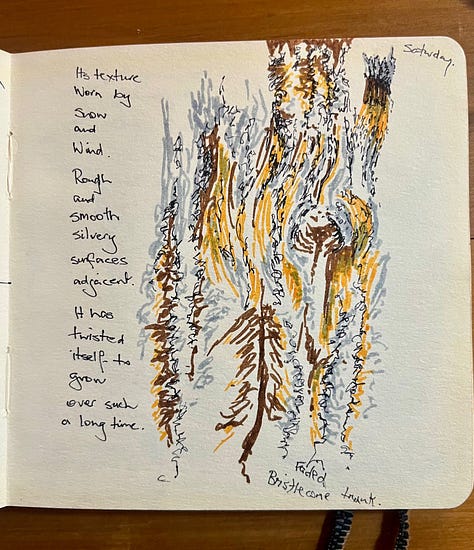 Saturday.
Its texture
Worn by
Snow
and
Wind.
Rough
and
smooth
silvery
surfaces
adjacent.
It has
twisted
itself to
grow
over such
a long time.
Faded
Bristlecone trunk.